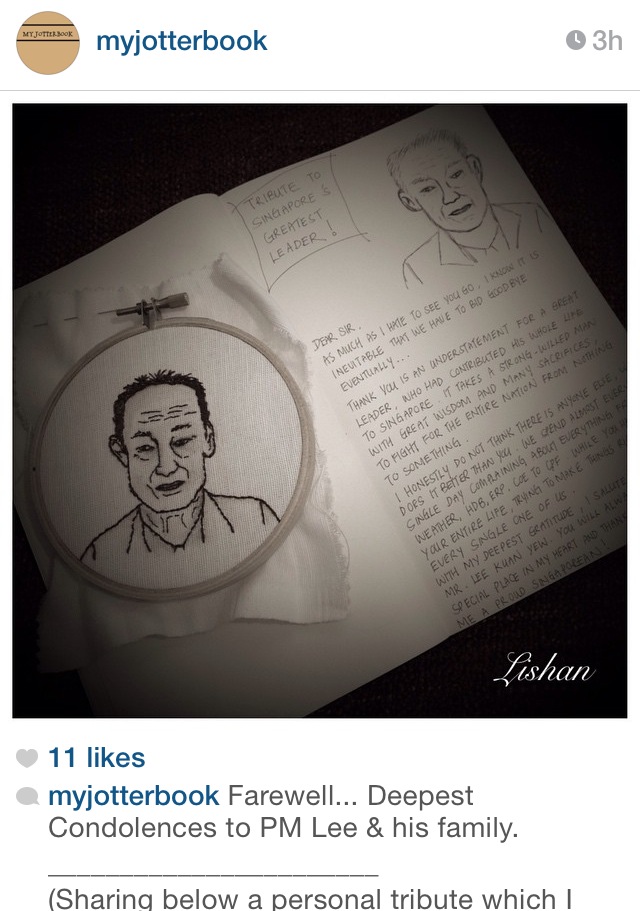 MY JOTTERBOOK
myjotterbook
3h
TRIBUTE TO
SINGAPORE'S
GREATEST
LEADER!
DEAR SIR,
AS MUCH AS I HATE TO SEE YOU GO, I KNOW IT IS
INEVITABLE THAT WE HAVE TO BID GOODBYE
EVENTUALLY...
THANK YOU IS AN UNDERSTATEMENT FOR A GREAT
LEADER, WHO HAD CONTRIBUTED HIS WHOLE LIFE
TO SINGAPORE. IT TAKES A STRONG-WILLED MAN
WITH GREAT WISDOM AND MANY SACRIFICES,
TO FIGHT FOR THE ENTIRE NATION FROM NOTHING
TO SOMETHING.
I HONESTLY DO NOT THINK THERE IS ANYONE ELSE,
DOES IT BETTER THAN YOU. WE SPEND ALMOST EVERY
SINGLE DAY COMPLAINING ABOUT EVERYTHING
WEATHER, HDB, ERP, COE TO CPF WHILE YOU
YOUR ENTIRE LIFE, TRYING TO MAKE THINGS
EVERY SINGLE ONE OF US.
WITH MY DEEPEST GRATITUDE, I SALUTE
MR. LEE KUAN YEW. YOU WILL ALWAYS
SPECIAL PLACE IN MY HEART AND THANK
ME A PROUD SINGAPOREAN
Lishan
11 likes
myjotterbook Farewell... Deepest
Condolences to PM Lee & his family.
________________________
(Sharing below a personal tribute which I